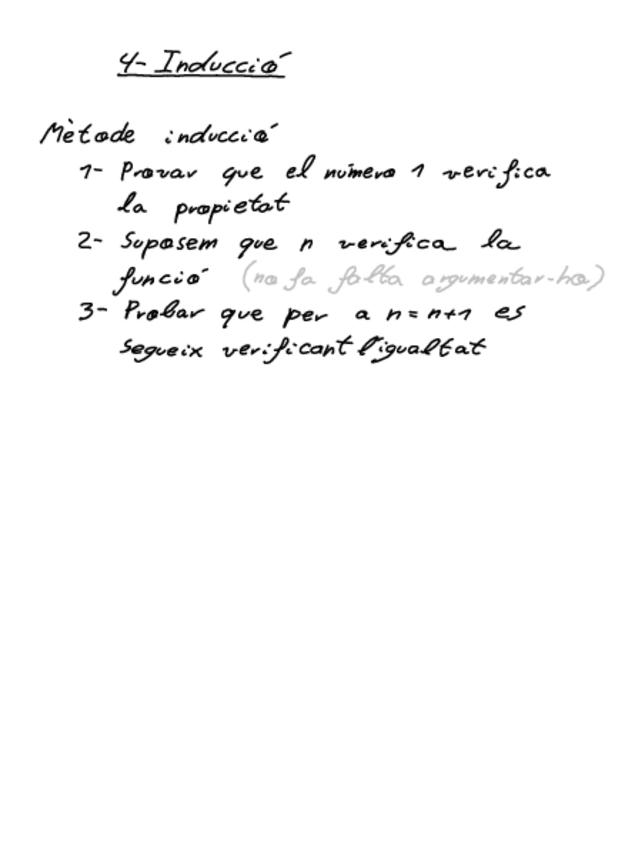 4- Inducció
Mètode inducció
1- Provar que el número 1 verifica
la propietat
2- Suposem que n verifica la
funció (no fa falta argumentar-ho)
3- Probar que per a n=n+1 es
segueix verificant l'igualtat